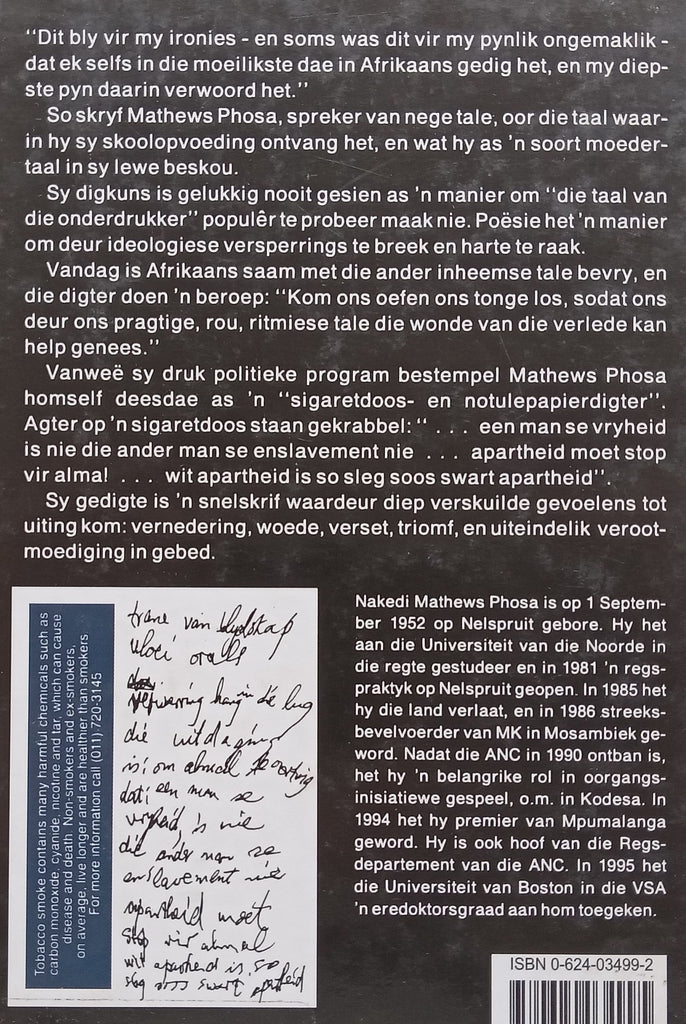 “Dit bly vir my ironies - en soms was dit vir my pynlik ongemaklik -
dat ek selfs in die moeilikste dae in Afrikaans gedig het, en my diep-
ste pyn daarin verwoord het.”
So skryf Mathews Phosa, spreker van nege tale, oor die taal waar-
in hy sy skoolopvoeding ontvang het, en wat hy as 'n soort moeder-
taal in sy lewe beskou.
Sy digkuns is gelukkig nooit gesien as 'n manier om “die taal van
die onderdrukker” populêr te probeer maak nie. Poësie het 'n manier
om deur ideologiese versperrings te breek en harte te raak.
Vandag is Afrikaans saam met die ander inheemse tale bevry, en
die digter doen 'n beroep: “Kom ons oefen ons tonge los, sodat ons
deur ons pragtige, rou, ritmiese tale die wonde van die verlede kan
help genees.”
Vanweë sy druk politieke program bestempel Mathews Phosa
homself deesdae as 'n “sigaretdoos- en notulepapierdigter”.
Agter op 'n sigaretdoos staan gekrabbel: “ . . . een man se vryheid
is nie die ander man se enslavement nie . . . apartheid moet stop
vir alma! . . . wit apartheid is so sleg soos swart apartheid”.
Sy gedigte is 'n snelskrif waardeur diep verskuilde gevoelens tot
uiting kom: vernedering, woede, verset, triomf, en uiteindelik veroot-
moediging in gebed.
Tobacco smoke contains many harmful chemicals such as
carbon monoxide, cyanide, nicotine and tar, which can cause
disease and death. Non-smokers and ex-smokers,
on average, live longer and are healthier than smokers
For more information call (011) 720-3145
trane van blydskap
vloei oralls
hang in die lug
die uitdaging
is; om almal te oortuig
dat; een man se
vryheid, is nie
die ander man se
enslavement nie
apartheid moet
stop vir almal
wit apartheid is so
sleg soos swart apartheid
Nakedi Mathews Phosa is op 1 Septem-
ber 1952 op Nelspruit gebore. Hy het
aan die Universiteit van die Noorde in
die regte gestudeer en in 1981 'n regs-
praktyk op Nelspruit geopen. In 1985 het
hy die land verlaat, en in 1986 streeks-
bevelvoerder van MK in Mosambiek ge-
word. Nadat die ANC in 1990 ontban is,
het hy 'n belangrike rol in oorgangs-
inisiatiewe gespeel, o.m. in Kodesa. In
1994 het hy premier van Mpumalanga
geword. Hy is ook hoof van die Regs-
departement van die ANC. In 1995 het
die Universiteit van Boston in die VSA
'n eredoktorsgraad aan hom toegeken.
ISBN 0-624-03499-2